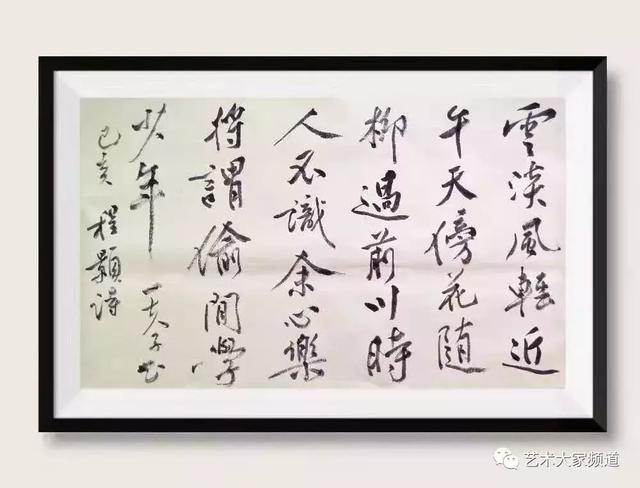 雲淡風輕近
午天傍花隨
柳過前川時
人不識余心樂
將謂偷閒學
少年 天子书
己亥 程顥詩
艺术大家频道